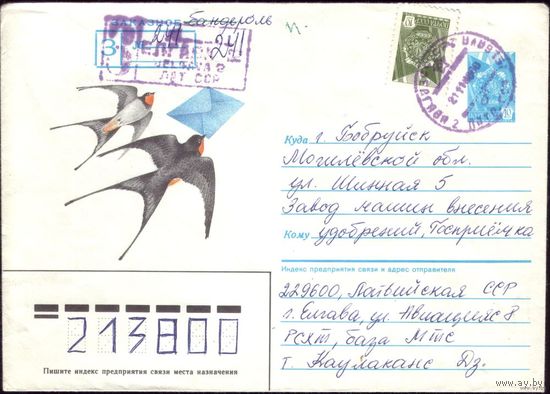 ЗАКАЗНОЕ бандероль
З
ЕЛГАВА 2
JELGAVA 2
ЛАТ ССР
241
ЕЛГАВА 2
Куда г. Бобруйск
Могилёвской обл.
ул. Шинная 5
Завод машин внесения
Кому удобрений, Госприёмка
Индекс предприятия связи и адрес отправителя
229600, Латвийская ССР
г. Елгава, ул. Авиацияс 8
РСХТ, база МТС
т Каулаканс Дз.
213800
Пишите индекс предприятия связи места назначения
www.ay.by